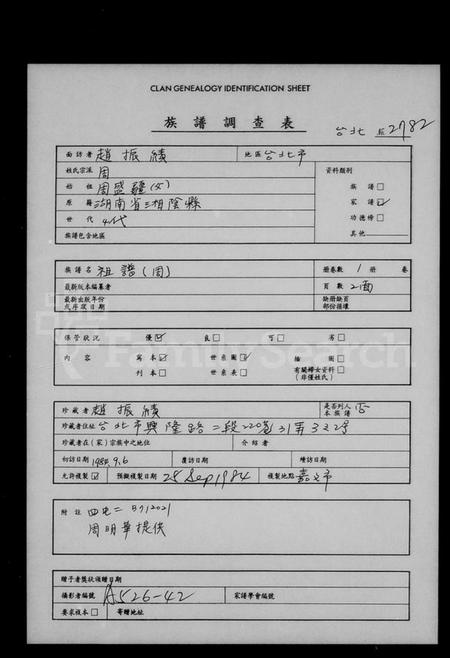 CLAN GENEALOGY IDENTIFICATION SHEET
族譜調查表
台北 2782
面訪者 趙振績 地區 台北市
姓氏宗派 周 資料類別
始祖 周盛 族譜□
原籍 湖南省湘陰縣 家譜☑
世代 4代 功德榜□
族譜包含地區 其他
族譜名 祖譜(周) 冊卷數 1 冊 卷
最新版本編纂者 頁數 2面
最新出版年份 缺冊缺頁
或序跋日期 部份損壞
保管狀況 優☑ 良□ 可□ 劣□
內容 寫本☑ 世系圖☑ 插圖□
刊本□ 世系表□ 有關婦女資料□
(非僅姓氏)
FamilySearch
珍藏者 趙振績 是否列入本族譜 否
珍藏者住址 台北市興隆路二段220巷31弄3之2號
珍藏者在(家)宗族中之地位 介紹者
初訪日 1984.9.6 覆訪日 續訪日
允許複製☑ 預擬複製日 28 Sep 1984 複製地點 嘉文市
附註 四屯二 5712021
周明華提供
贈予者獎狀頒贈日期
攝影者編號 A526-42 家譜學會編號
要求複本□ 寄贈地址